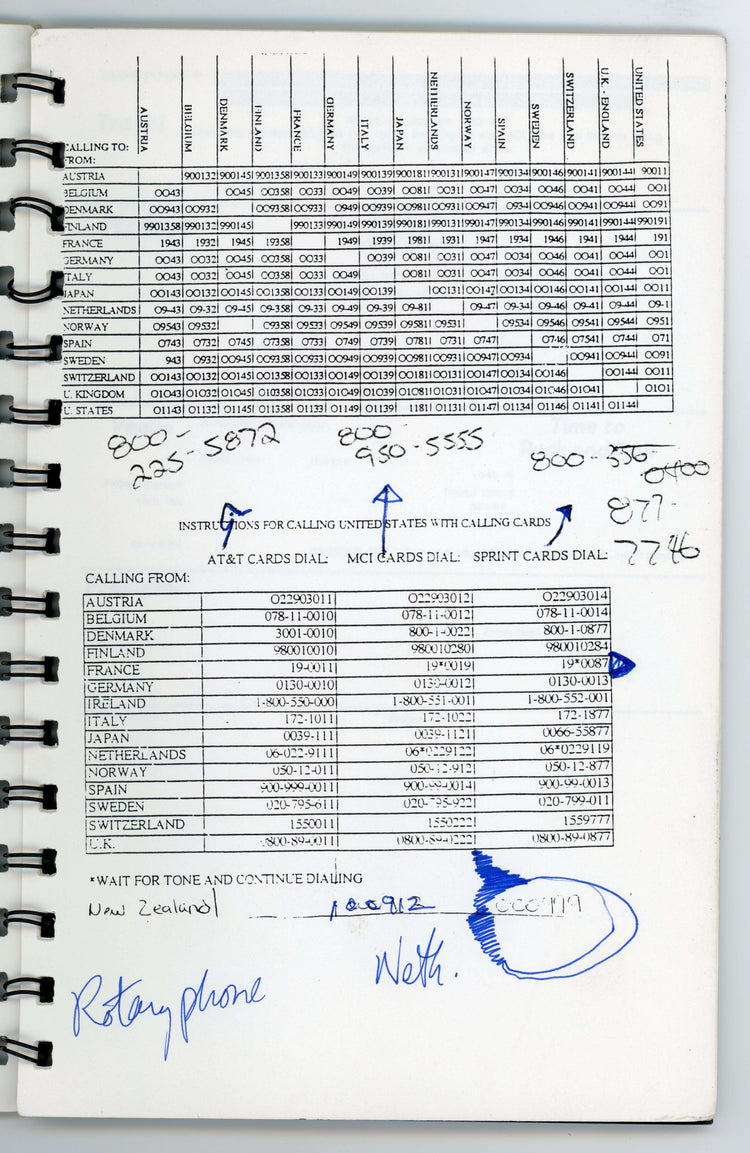 AUSTRIA BELGIUM DENMARK FINLAND FRANCE GERMANY ITALY JAPAN NETHERLANDS NORWAY SPAIN SWEDEN SWITZERLAND U.K. - ENGLAND UNITED STATES
CALLING TO:
FROM:
AUSTRIA 900132 900145 9001358 900133 900149 900139 900181 900131 900147 900134 900146 900141 900144 90011
BELGIUM OO43 OO45 OO358 OO33 OO49 OO39 OO81 OO31 OO47 OO34 OO46 OO41 OO44 OO1
DENMARK OO943 OO932 OO9358 OO933 O949 OO939 OO981 OO931 OO947 O934 OO946 OO941 OO944 OO91
FINLAND 9901358 990132 990145 990133 990149 990139 990181 990131 990147 990134 990146 990141 990144 990191
FRANCE 1943 1932 1945 19358 1949 1939 1981 1931 1947 1934 1946 1941 1944 191
GERMANY OO43 OO32 OO45 OO358 OO33 OO39 OO81 OO31 OO47 OO34 OO46 OO41 OO44 OO1
ITALY OO43 OO32 OO45 OO358 OO33 OO49 OO81 OO31 OO47 OO34 OO46 OO41 OO44 OO1
JAPAN OO143 OO132 OO145 OO1358 OO133 OO149 OO139 OO131 OO147 OO134 OO146 OO141 OO144 OO11
NETHERLANDS O9-43 O9-32 O9-45 O9-358 O9-33 O9-49 O9-39 O9-81 O9-47 O9-34 O9-46 O9-41 O9-44 O9-1
NORWAY O9543 O9532 O9358 O9533 O9549 O9539 O9581 O9531 O9534 O9546 O9541 O9544 O951
SPAIN O743 O732 O745 O7358 O733 O749 O739 O781 O731 O747 O746 O7541 O744 O71
SWEDEN 943 O932 OO945 OO9358 OO933 OO949 OO939 OO981 OO931 OO947 OO934 OO941 OO944 OO91
SWITZERLAND OO143 OO132 OO145 OO1358 OO133 OO149 OO139 OO181 OO131 OO147 OO134 OO146 OO144 OO11
U. KINGDOM O1O43 O1O32 O1O45 O10358 O1O33 O1O49 O1O39 O1O81 O1O31 O1O47 O1O34 O1O46 O1O41 O1O1
U. STATES O1143 O1132 O1145 O11358 O1133 O1149 O1139 1181 O1131 O1147 O1134 O1146 O1141 O1144
800-
225-5872
800
950-5555
800-356-
0400
877-
7746
INSTRUCTIONS FOR CALLING UNITED STATES WITH CALLING CARDS
AT&T CARDS DIAL: MCI CARDS DIAL: SPRINT CARDS DIAL:
CALLING FROM:
AUSTRIA O22903011 O22903012 O22903014
BELGIUM 078-11-0010 078-11-0012 078-11-0014
DENMARK 3001-0010 800-1-0022 800-1-0877
FINLAND 980010010 980010280 980010284
FRANCE 19-0011 19*0019 19*0087
GERMANY 0130-0010 0130-0012 0130-0013
IRELAND 1-800-550-000 1-800-551-001 1-800-552-001
ITALY 172-1011 172-1022 172-1877
JAPAN 0039-111 0039-1121 0066-55877
NETHERLANDS 06-022-9111 06*0229122 06*0229119
NORWAY 050-12-011 050-12-912 050-12-877
SPAIN 900-999-0011 900-99-0014 900-99-0013
SWEDEN 020-795-611 020-795-922 020-799-011
SWITZERLAND 1550011 1550222 1559777
U.K. 0800-89-0011 0800-89-0222 0800-89-0877
*WAIT FOR TONE AND CONTINUE DIALING
New Zealand 000912 000999
Neth.
Rotary phone